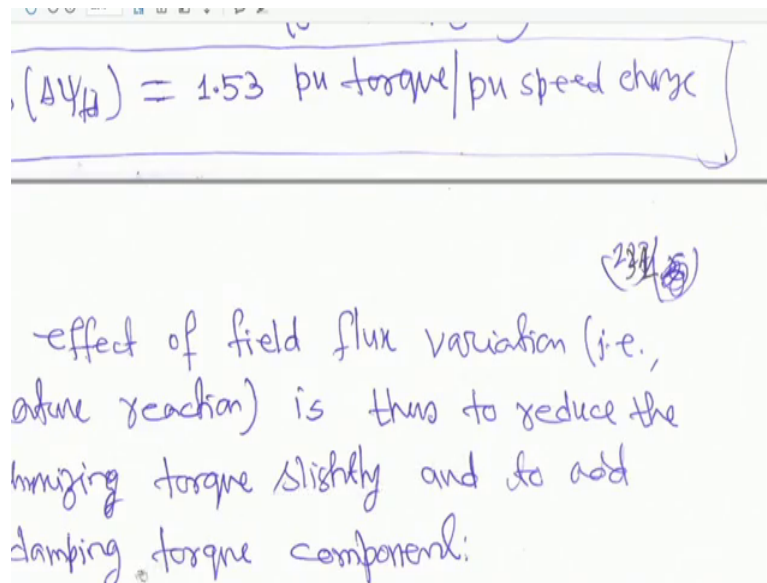 (ΔΨfd) = 1.53 pu torque/pu speed change
effect of field flux variation (i.e.,
ature reaction) is thus to reduce the
hronizing torque slightly and to add
damping torque component.